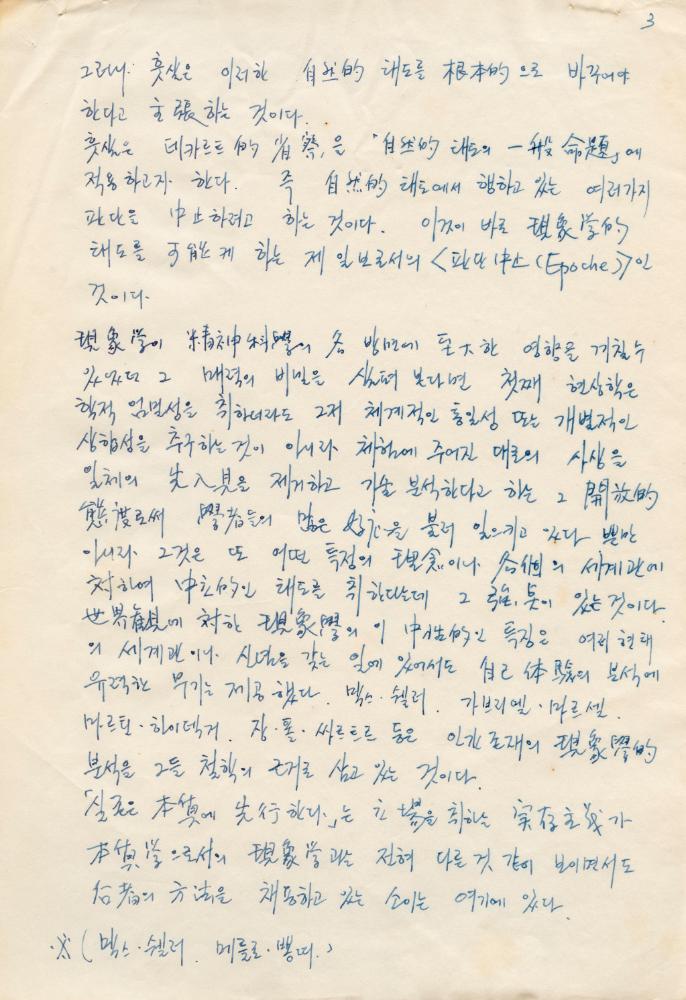 3
그러나. 훗살은 이러한 自然的 태도를 根本的으로 바꾸어야
한다고 主張하는 것이다.
훗살은 데카르트的 省察,을 「自然的 태도의 一般命題」에
적용하고자 한다. 즉 自然的 태도에서 행하고 있는 여러가지
판단을 中止하려고 하는 것이다. 이것이 바로 現象学的
태도를 可能케 하는 제 일보로서의 <판단中止(Epoche)>인
것이다.
現象学이 精神科學의 各 방면에 至大한 영향을 끼칠수
있었던 그 매력의 비밀은 살펴 본다면 첫째 현상학은
학적 엄밀성을 취하더라도 그저 체계적인 통일성 또는 개별적인
상합성을 추구하는것이 아니라 체험에 주어진 대로의 사상을
일체의 先入見을 제거하고 기술 분석한다고 하는 그 開放的
態度로써 學者들의 많은 好意을 불러 일으키고 있다 뿐만
아니라. 그것은 또 어떤 특정의 理念이나 各個의 세계관에
対하여 中立的인 태도를 취한다는데 그 強点이 있는것이다.
世界觀에 対한 現象學의 이 中性的인 특징은 여러 형태
의 세계관이나 신념을 갖는 일에 있어서도 自己体驗의 분석에
유력한 무기는 제공했다. 맥스·쉘러. 가브리엘·마르셀.
마르틴·하이덱거. 장·폴·싸르트르 등은 인간존재의 現象學的
분석을 그들 철학의 근거로 삼고 있는 것이다.
「실존은 本質에 先行한다.」는 立場을 취하는 実存主義가
本質学으로서의 現象学과는 전혀 다른것 같이 보이면서도
后者의 方法을 채용하고 있는 소이는 여기에 있다.
※ (맥스·쉘러. 메를로·뽕띠.)